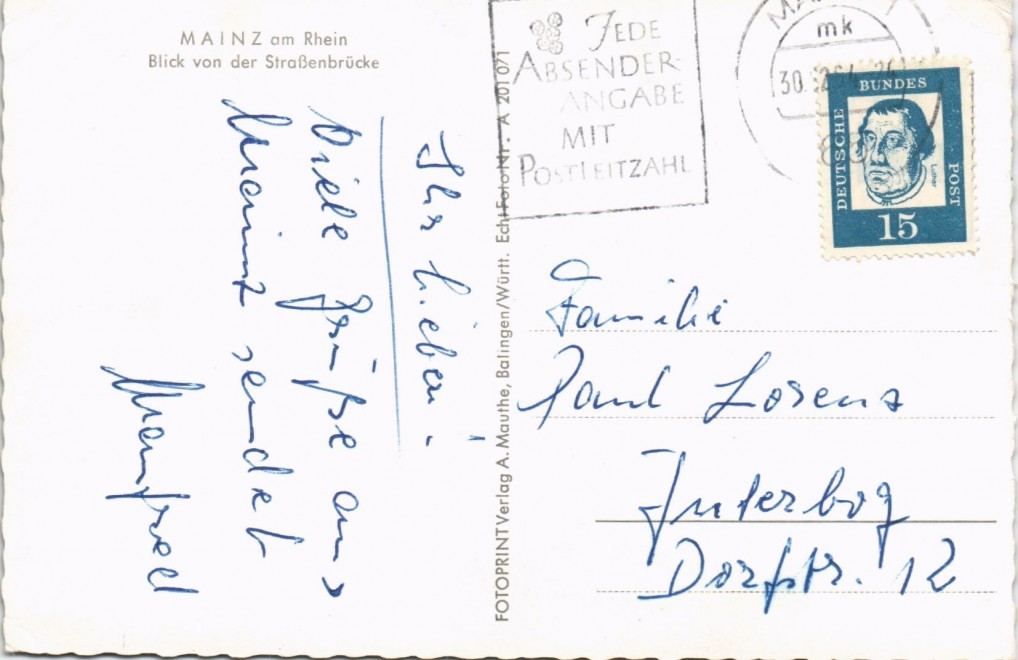 MAINZ am Rhein
Blick von der Straßenbrücke
Ihr Lieben.
Viele Grüße aus
Mainz sendet
Manfred
FOTOPRINTVerlag A. Mauthe, Balingen/Württ. Echt Foto Nr. A 201 071
JEDE
ABSENDER-
ANGABE
MIT
POSTLEITZAHL
mk
DEUTSCHE
BUNDES
POST
Luther
15
Familie
Paul Lorenz
Juterbog
Dorfstr. 12